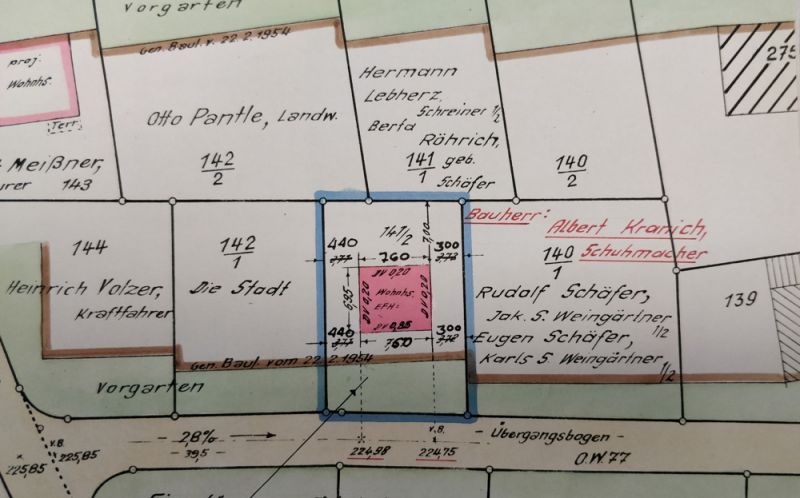 Vorgarten
Gen. Baul. v. 22.2.1954
proj.
Wohnhs.
Terr.
275
Hermann
Lebherz,
Schreiner 1/2
Berta
Röhrich,
geb.
Schäfer
141/1
Otto Pantle, Landw.
142/2
140/2
Meißner,
143
Bauherr:
Albert Kranich,
Schuhmacher
144
Heinrich Volzer,
Kraftfahrer
142/1
Die Stadt
141/2
7,00
440
760
300
DV 0,20
DV 0,20
Wohnhs.
EFH=
DV 0,20
6,95
DV 0,85
440
760
300
140/1
Rudolf Schäfer,
Jak. S. Weingärtner 1/2
Eugen Schäfer,
Karls S. Weingärtner, 1/2
139
Gen. Baul. vom 22.2.1954
Vorgarten
V.B.
225,85
225,85
2,8%
-39,5-
224,98
224,75
V.B.
- Übergangsbogen -
O.W.77